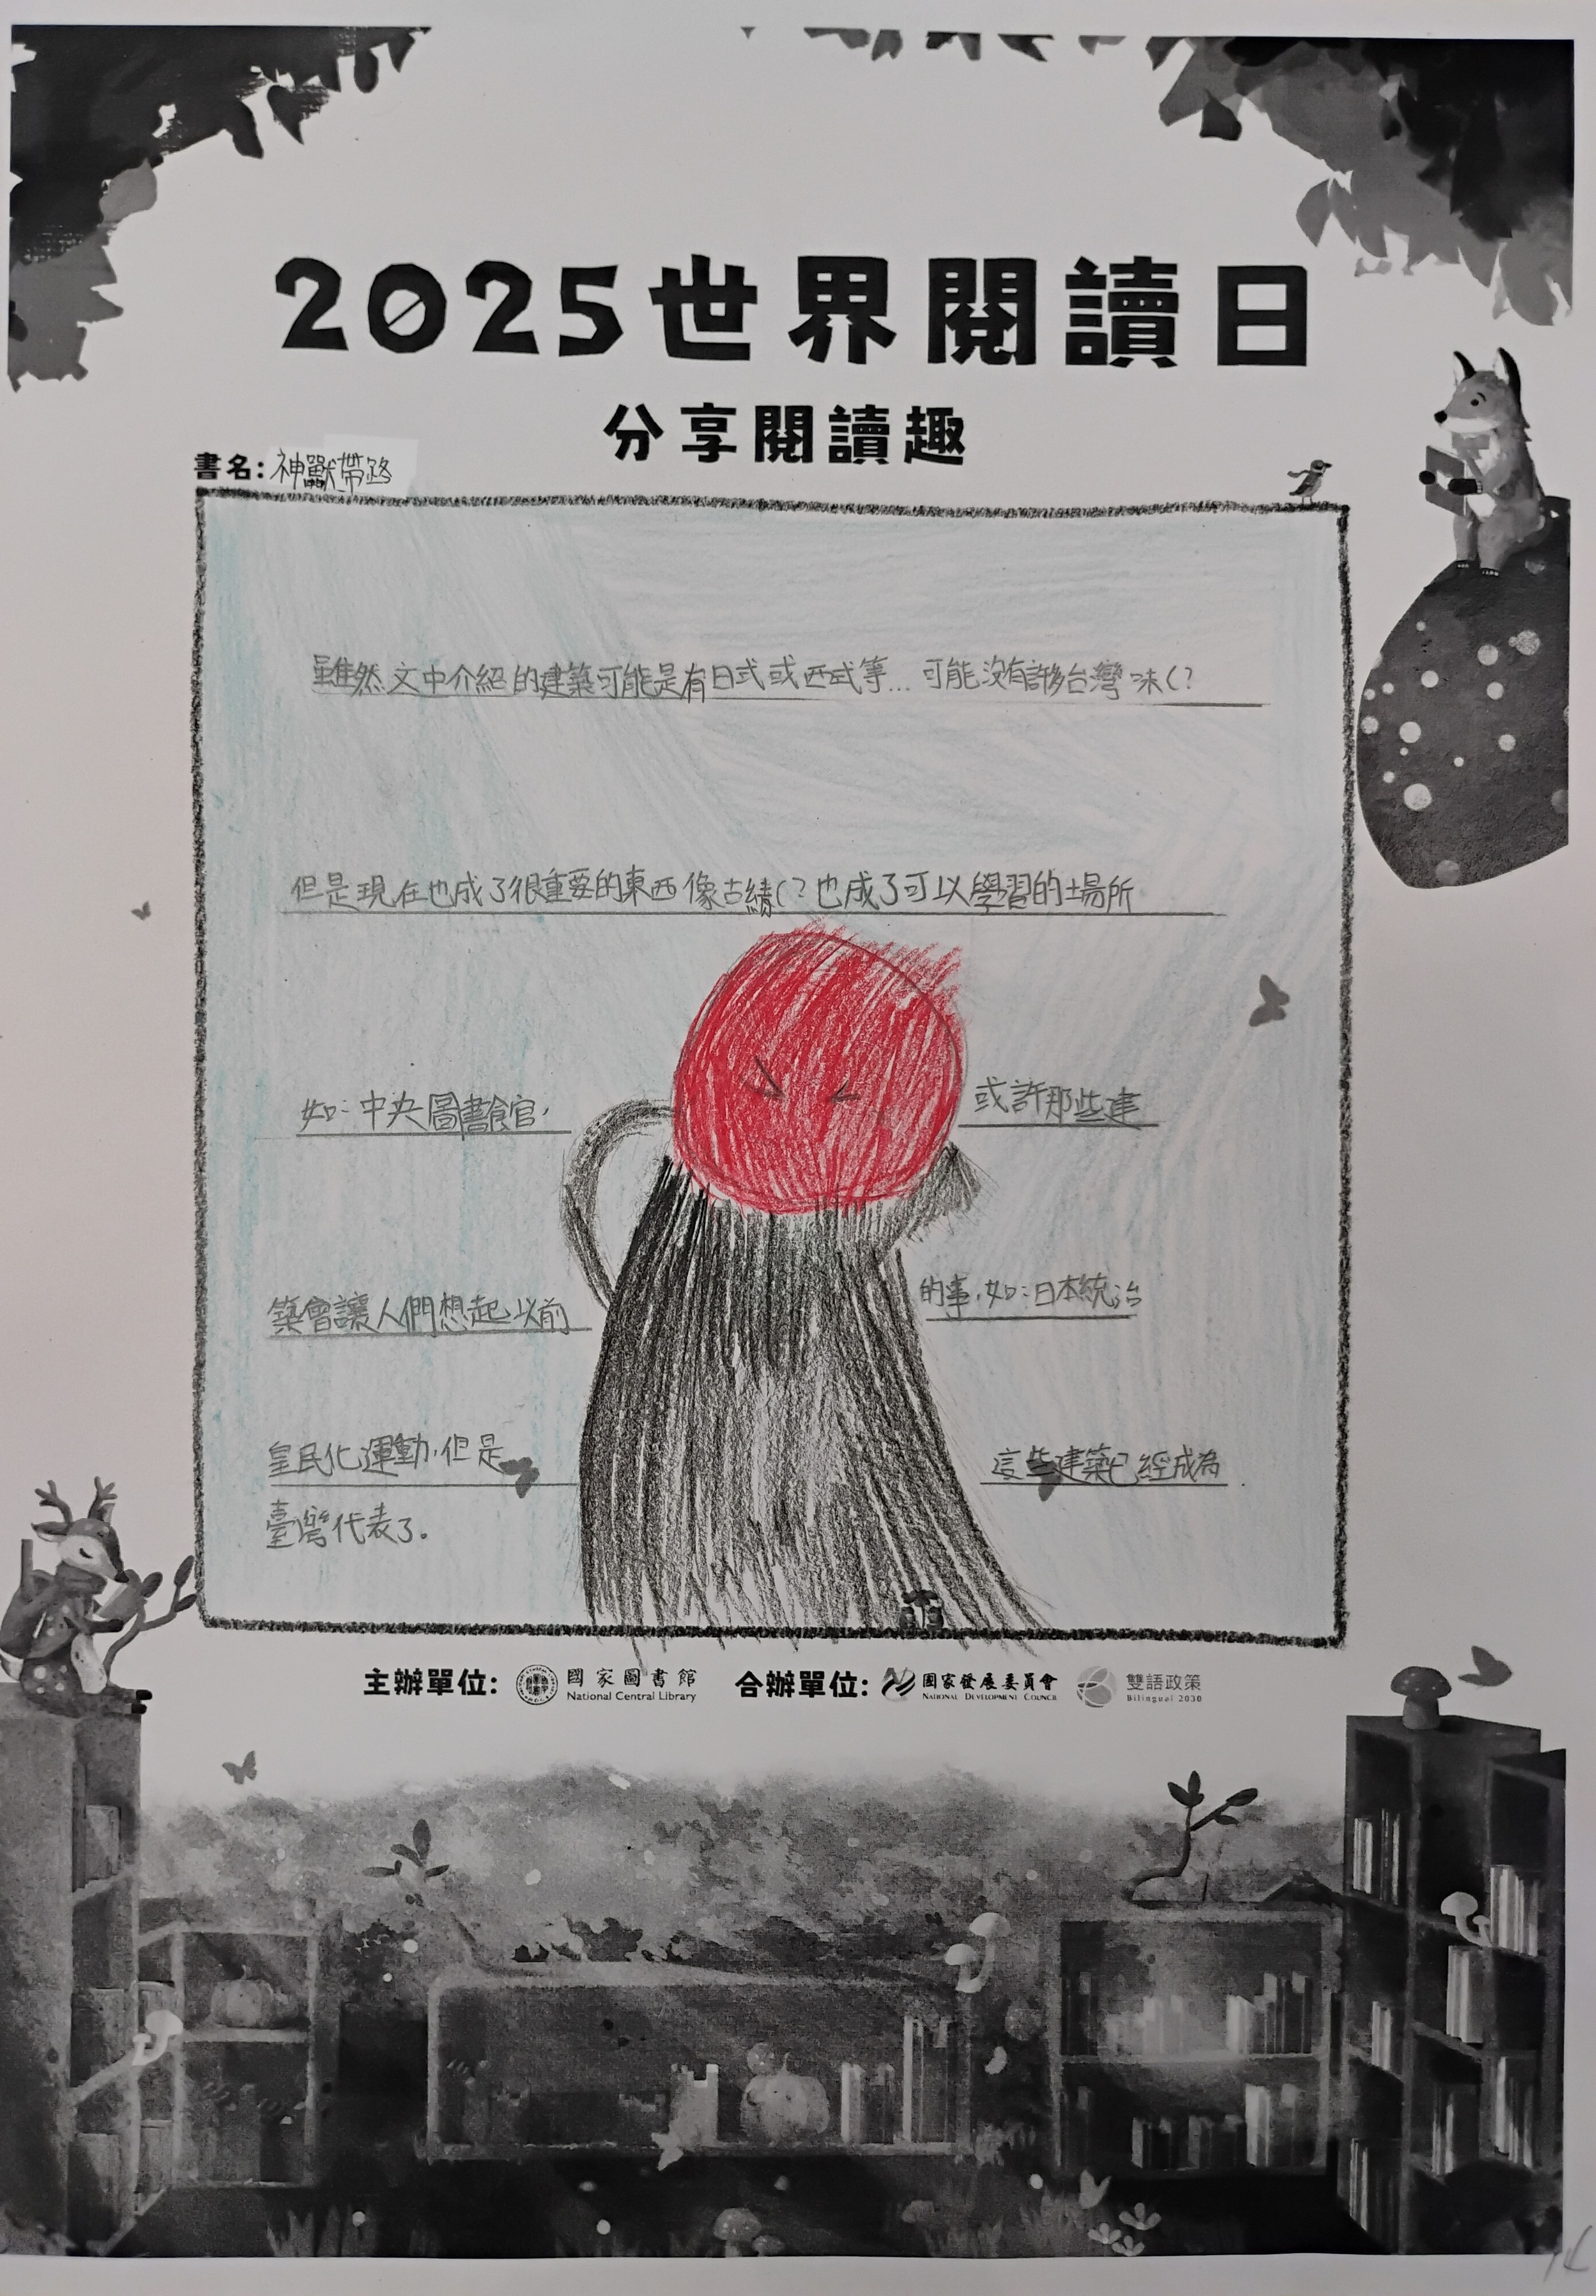 2025世界閱讀日
分享閱讀趣
書名:神獸帶路
雖然文中介紹的建築可能是有日式或西式等...可能沒有許多台灣味(?
但是現在也成了很重要的東西像古績(?也成了可以學習的場所
如:中央圖書館, 或許那些建
築會讓人們想起以前 的事,如:日本統治
皇民化運動,但是 這些建築已經成為
臺灣代表了。
主辦單位: 國家圖書館 National Central Library 合辦單位: 國家發展委員會 NATIONAL DEVELOPMENT COUNCIL 雙語政策 Bilingual 2030